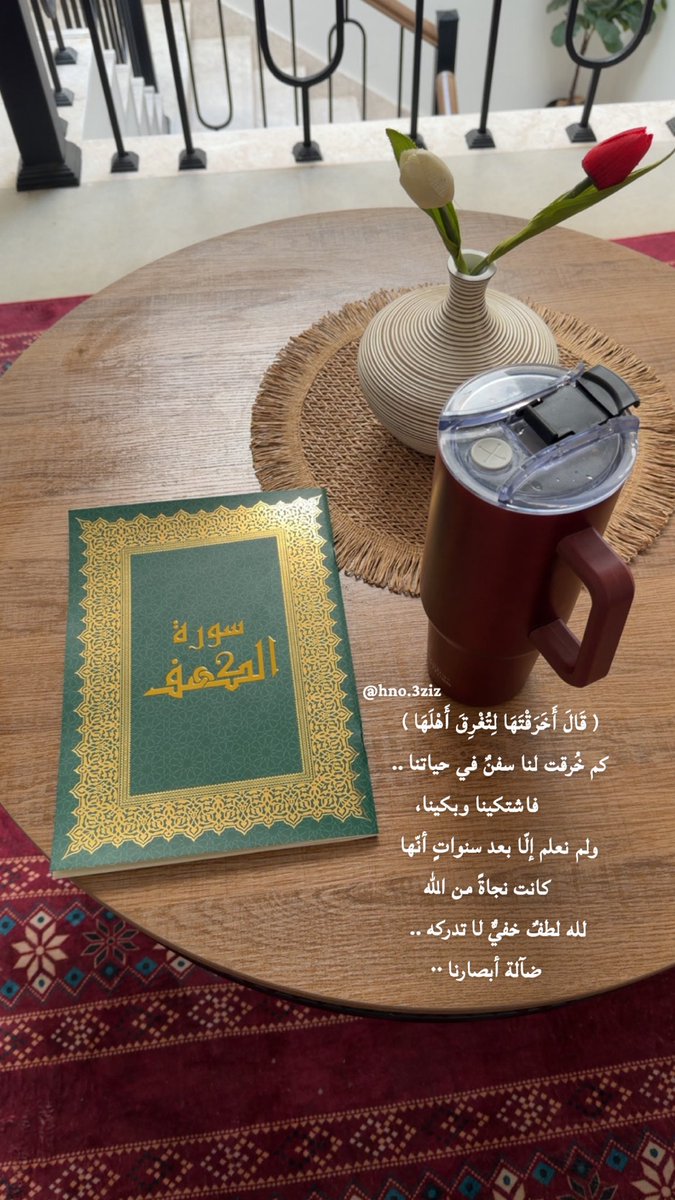 سورة
الكهف
@hno.3ziz
( قَالَ أَخَرَقْتَهَا لِتُغْرِقَ أَهْلَهَا )
كم خُرقت لنا سفنٌ في حياتنا ..
فاشتكينا وبكينا،
ولم نعلم إلّا بعد سنواتٍ أنّها
كانت نجاةً من الله
لله لطفٌ خفيٌّ لا تدركه ..
ضآلة أبصارنا ..